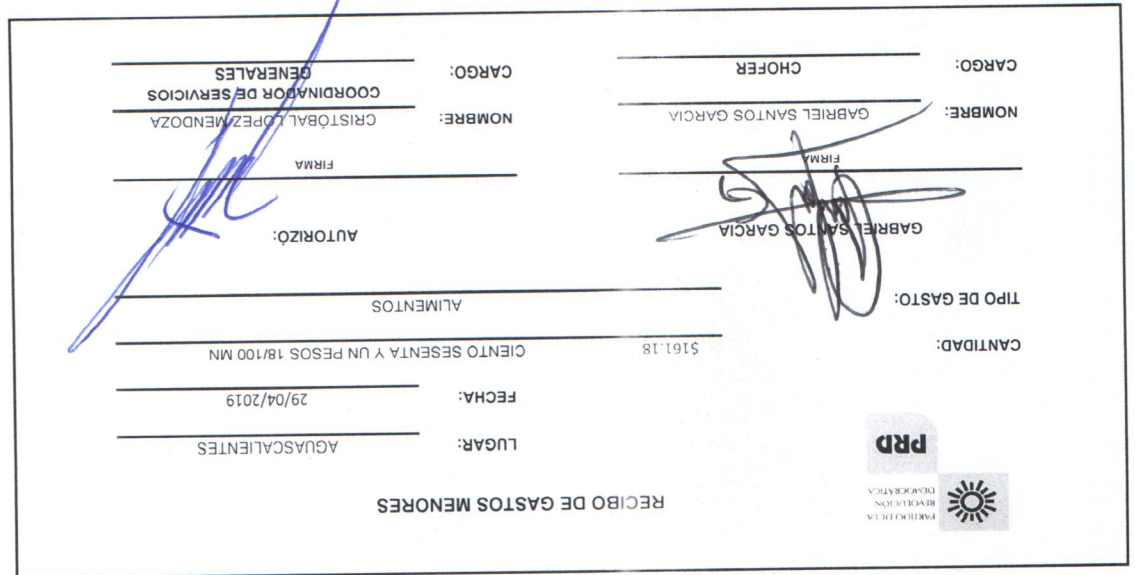 PARTIDO DE LA
REVOLUCIÓN
DEMOCRÁTICA
PRD
RECIBO DE GASTOS MENORES
LUGAR: AGUASCALIENTES
FECHA: 29/04/2019
CANTIDAD: $161.18 CIENTO SESENTA Y UN PESOS 18/100 MN
TIPO DE GASTO: ALIMENTOS
GABRIEL SANTOS GARCIA AUTORIZÓ:
FIRMA FIRMA
NOMBRE: GABRIEL SANTOS GARCIA NOMBRE: CRISTÓBAL LÓPEZ MENDOZA
CARGO: CHOFER CARGO: COORDINADOR DE SERVICIOS
GENERALES